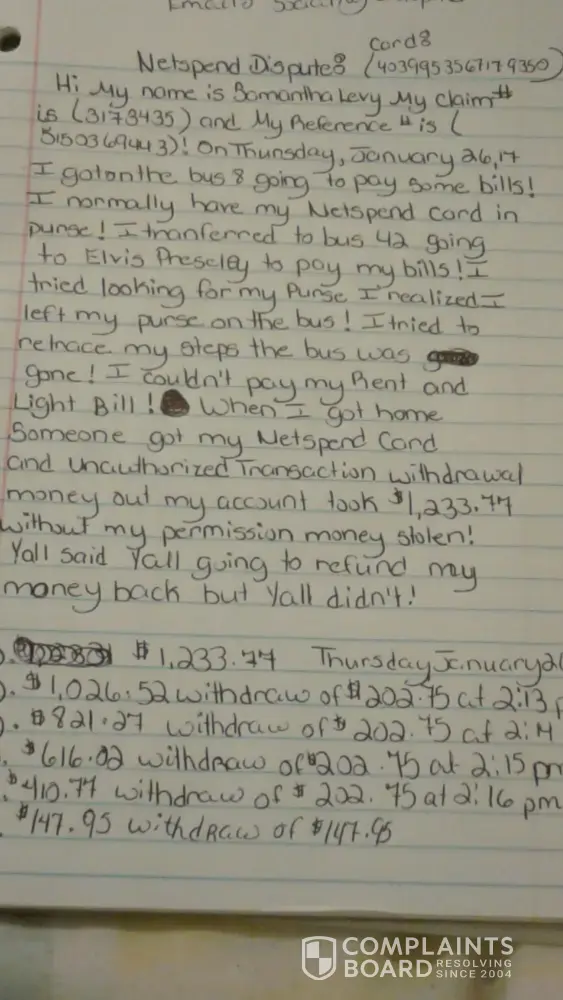 Emails
Card8
Netspend Dispute8 (4039953567179350)
Hi My name is Samantha Levy My claim#
is (3173435) and My Reference # is (
5150369443)! On Thursday, January 26,17
I got on the bus 8 going to pay some bills!
I normally have my Netspend Card in
purse! I tranferred to bus 42 going
to Elvis Preseley to pay my bills! I
tried looking for my Purse I realized I
left my purse on the bus! I tried to
retrace my steps the bus was
gone! I couldn't pay my Rent and
Light Bill! When I got home
Someone got my Netspend Card
and Unauthorized Transaction withdrawal
money out my account took $1,233.77
without my permission money stolen!
Yall said Yall going to refund my
money back but Yall didn't!
$1,233.77 Thursday January 26
$1,026.52 withdraw of $202.75 at 2:13 p
$821.27 withdraw of $202.75 at 2:14
$616.02 withdraw of $202.75 at 2:15 pm
$410.77 withdraw of $202.75 at 2:16 pm
$147.95 withdraw of $147.95
COMPLAINTS
BOARD RESOLVING
SINCE 2004